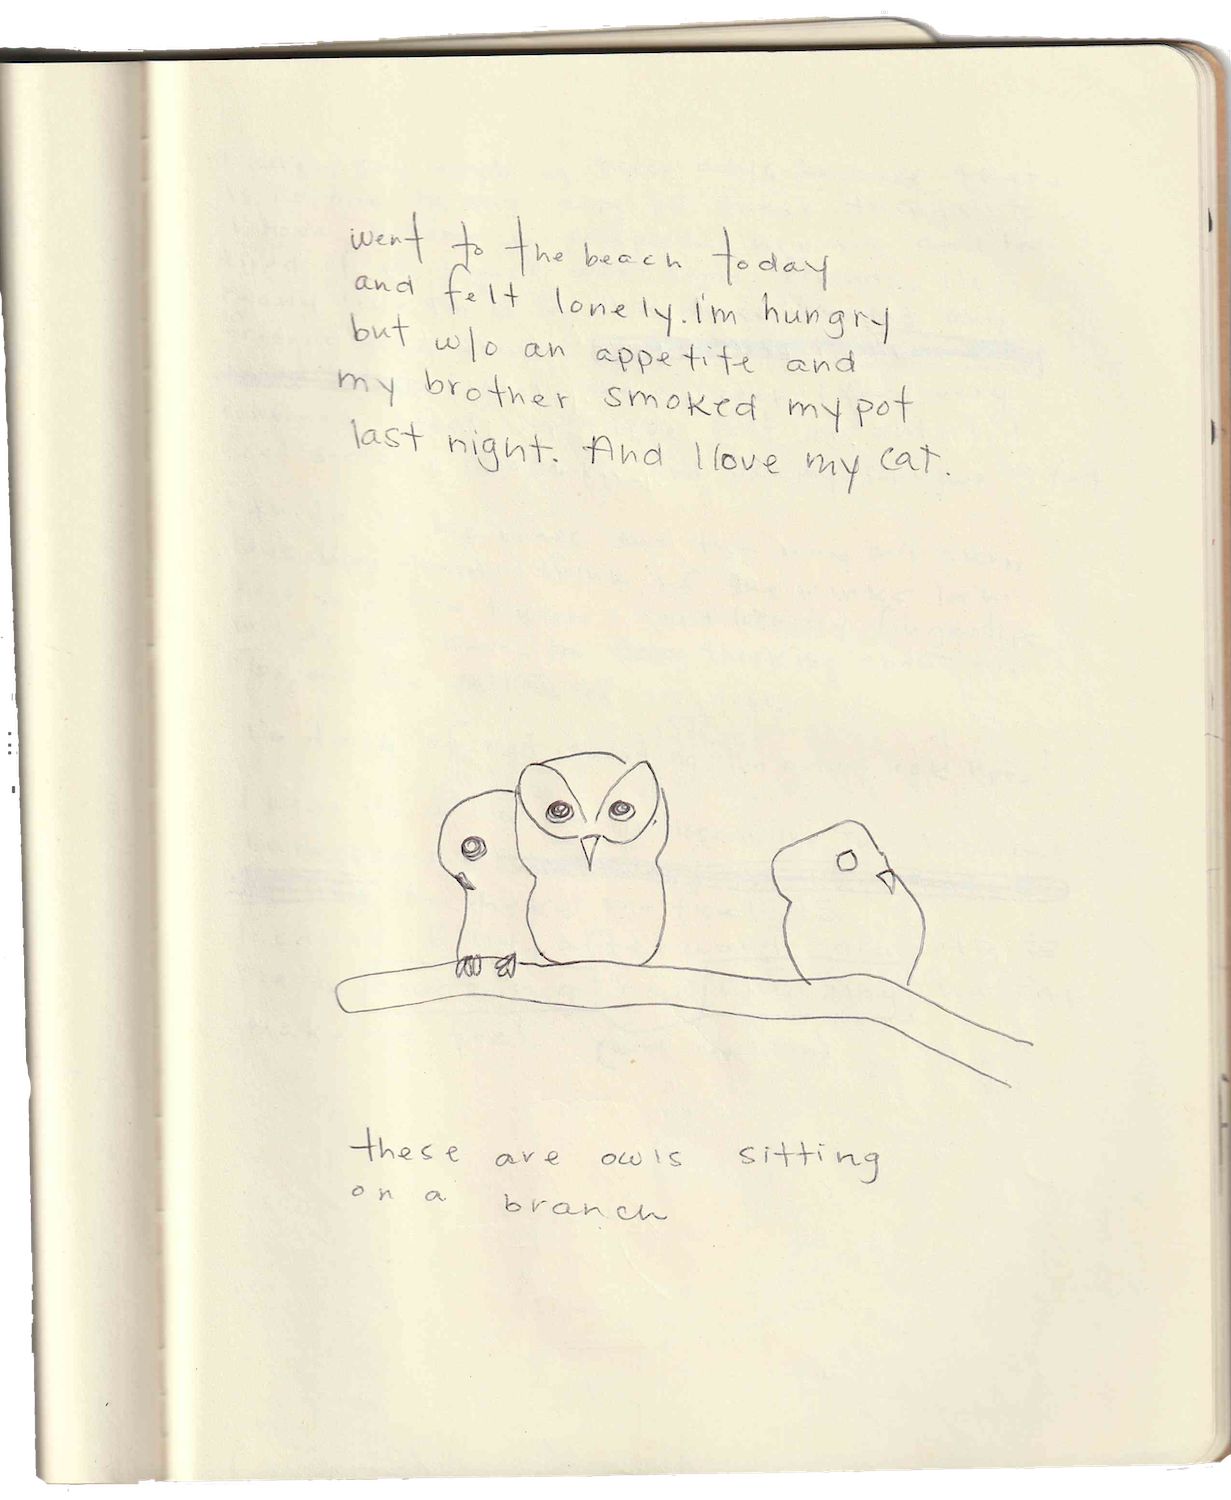 went to the beach today
and felt lonely. i'm hungry
but w/o an appetite and
my brother smoked my pot
last night. And I love my cat.
these are owls sitting
on a branch